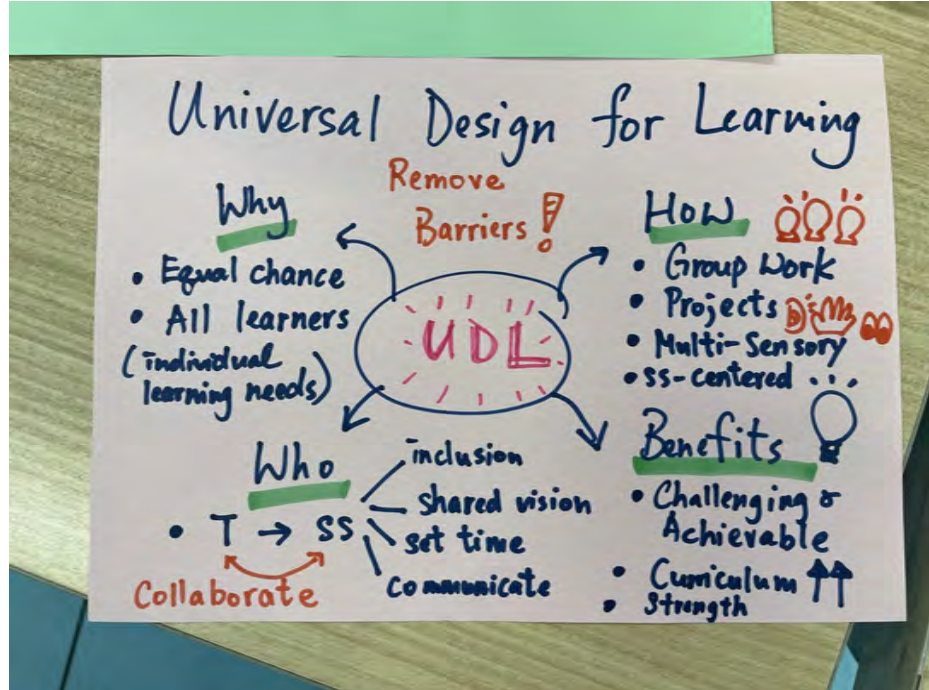 Universal Design for Learning
Remove
Barriers!
UDL
Why
• Equal chance
• All learners
(individual
learning needs)
How
• Group Work
• Projects
• Multi-Sensory
• ss-centered
Who
• T → SS
Collaborate
inclusion
shared vision
set time
communicate
Benefits
• Challenging &
Achievable
• Curriculum ↑↑
• Strength